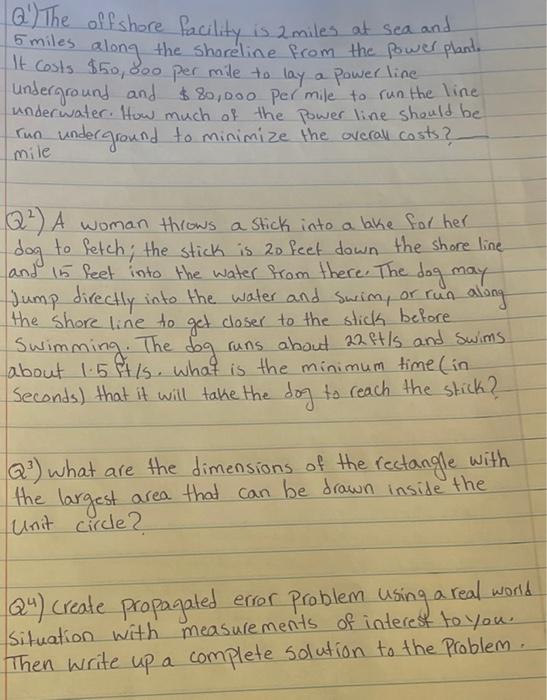 Q¹) The offshore facility is 2 miles at sea and
5 miles along the shoreline from the power plant.
It costs $50,000 per mile to lay a power line
underground and $80,000 per mile to run the line
underwater. How much of the power line should be
run underground to minimize the overall costs? ___
mile
Q²) A woman throws a stick into a lake for her
dog to fetch; the stick is 20 feet down the shore line
and 15 feet into the water from there. The dog may
Jump directly into the water and swim, or run along
the shore line to get closer to the stick before
swimming. The dog runs about 22 ft/s and swims
about 1.5 ft/s. what is the minimum time (in
seconds) that it will take the dog to reach the stick?
Q³) what are the dimensions of the rectangle with
the largest area that can be drawn inside the
Unit circle?
Q4) create propagated error problem using a real world
situation with measurements of interest to you.
Then write up a complete solution to the problem.